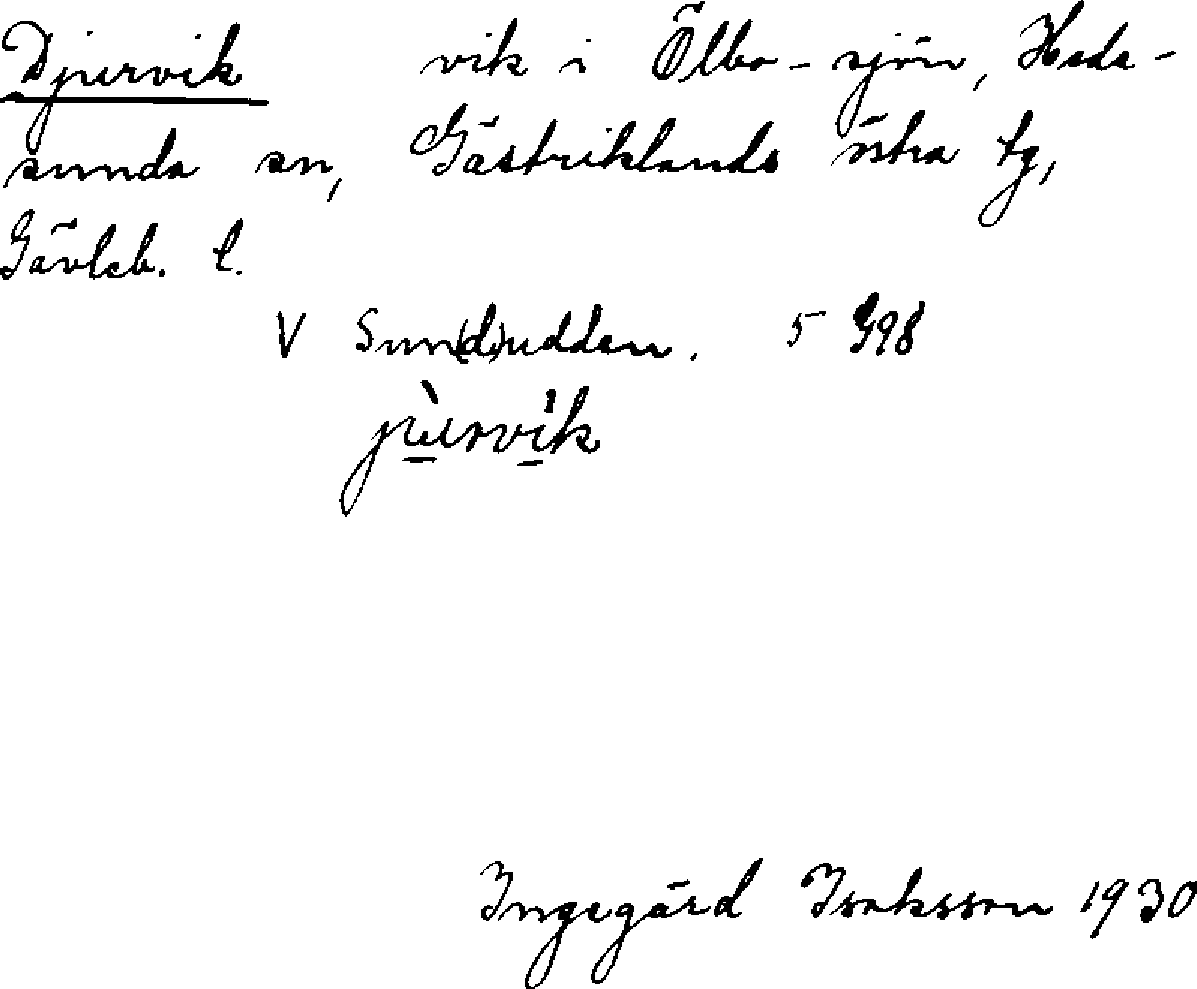 Djurvik vik i Ölbo-sjön, Heds-
sunda sn, Gästriklands östra tg,
Gävleb. l.
V Sun(d)udden. 5 998
jùrvìk
Ingegärd Isaksson 1930